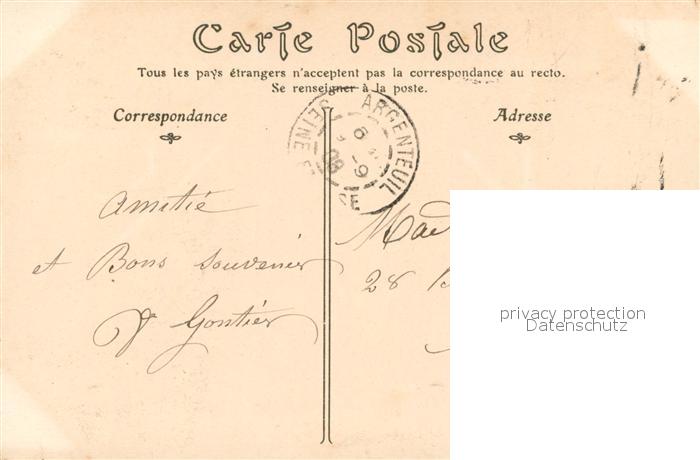 Carte Postale
Tous les pays étrangers n'acceptent pas la correspondance au recto.
Se renseigner à la poste.
Correspondance
Adresse
ARGENTEUIL
SEINE
08
Amitié
et Bons souvenirs
Gontier
28
privacy protection
Datenschutz